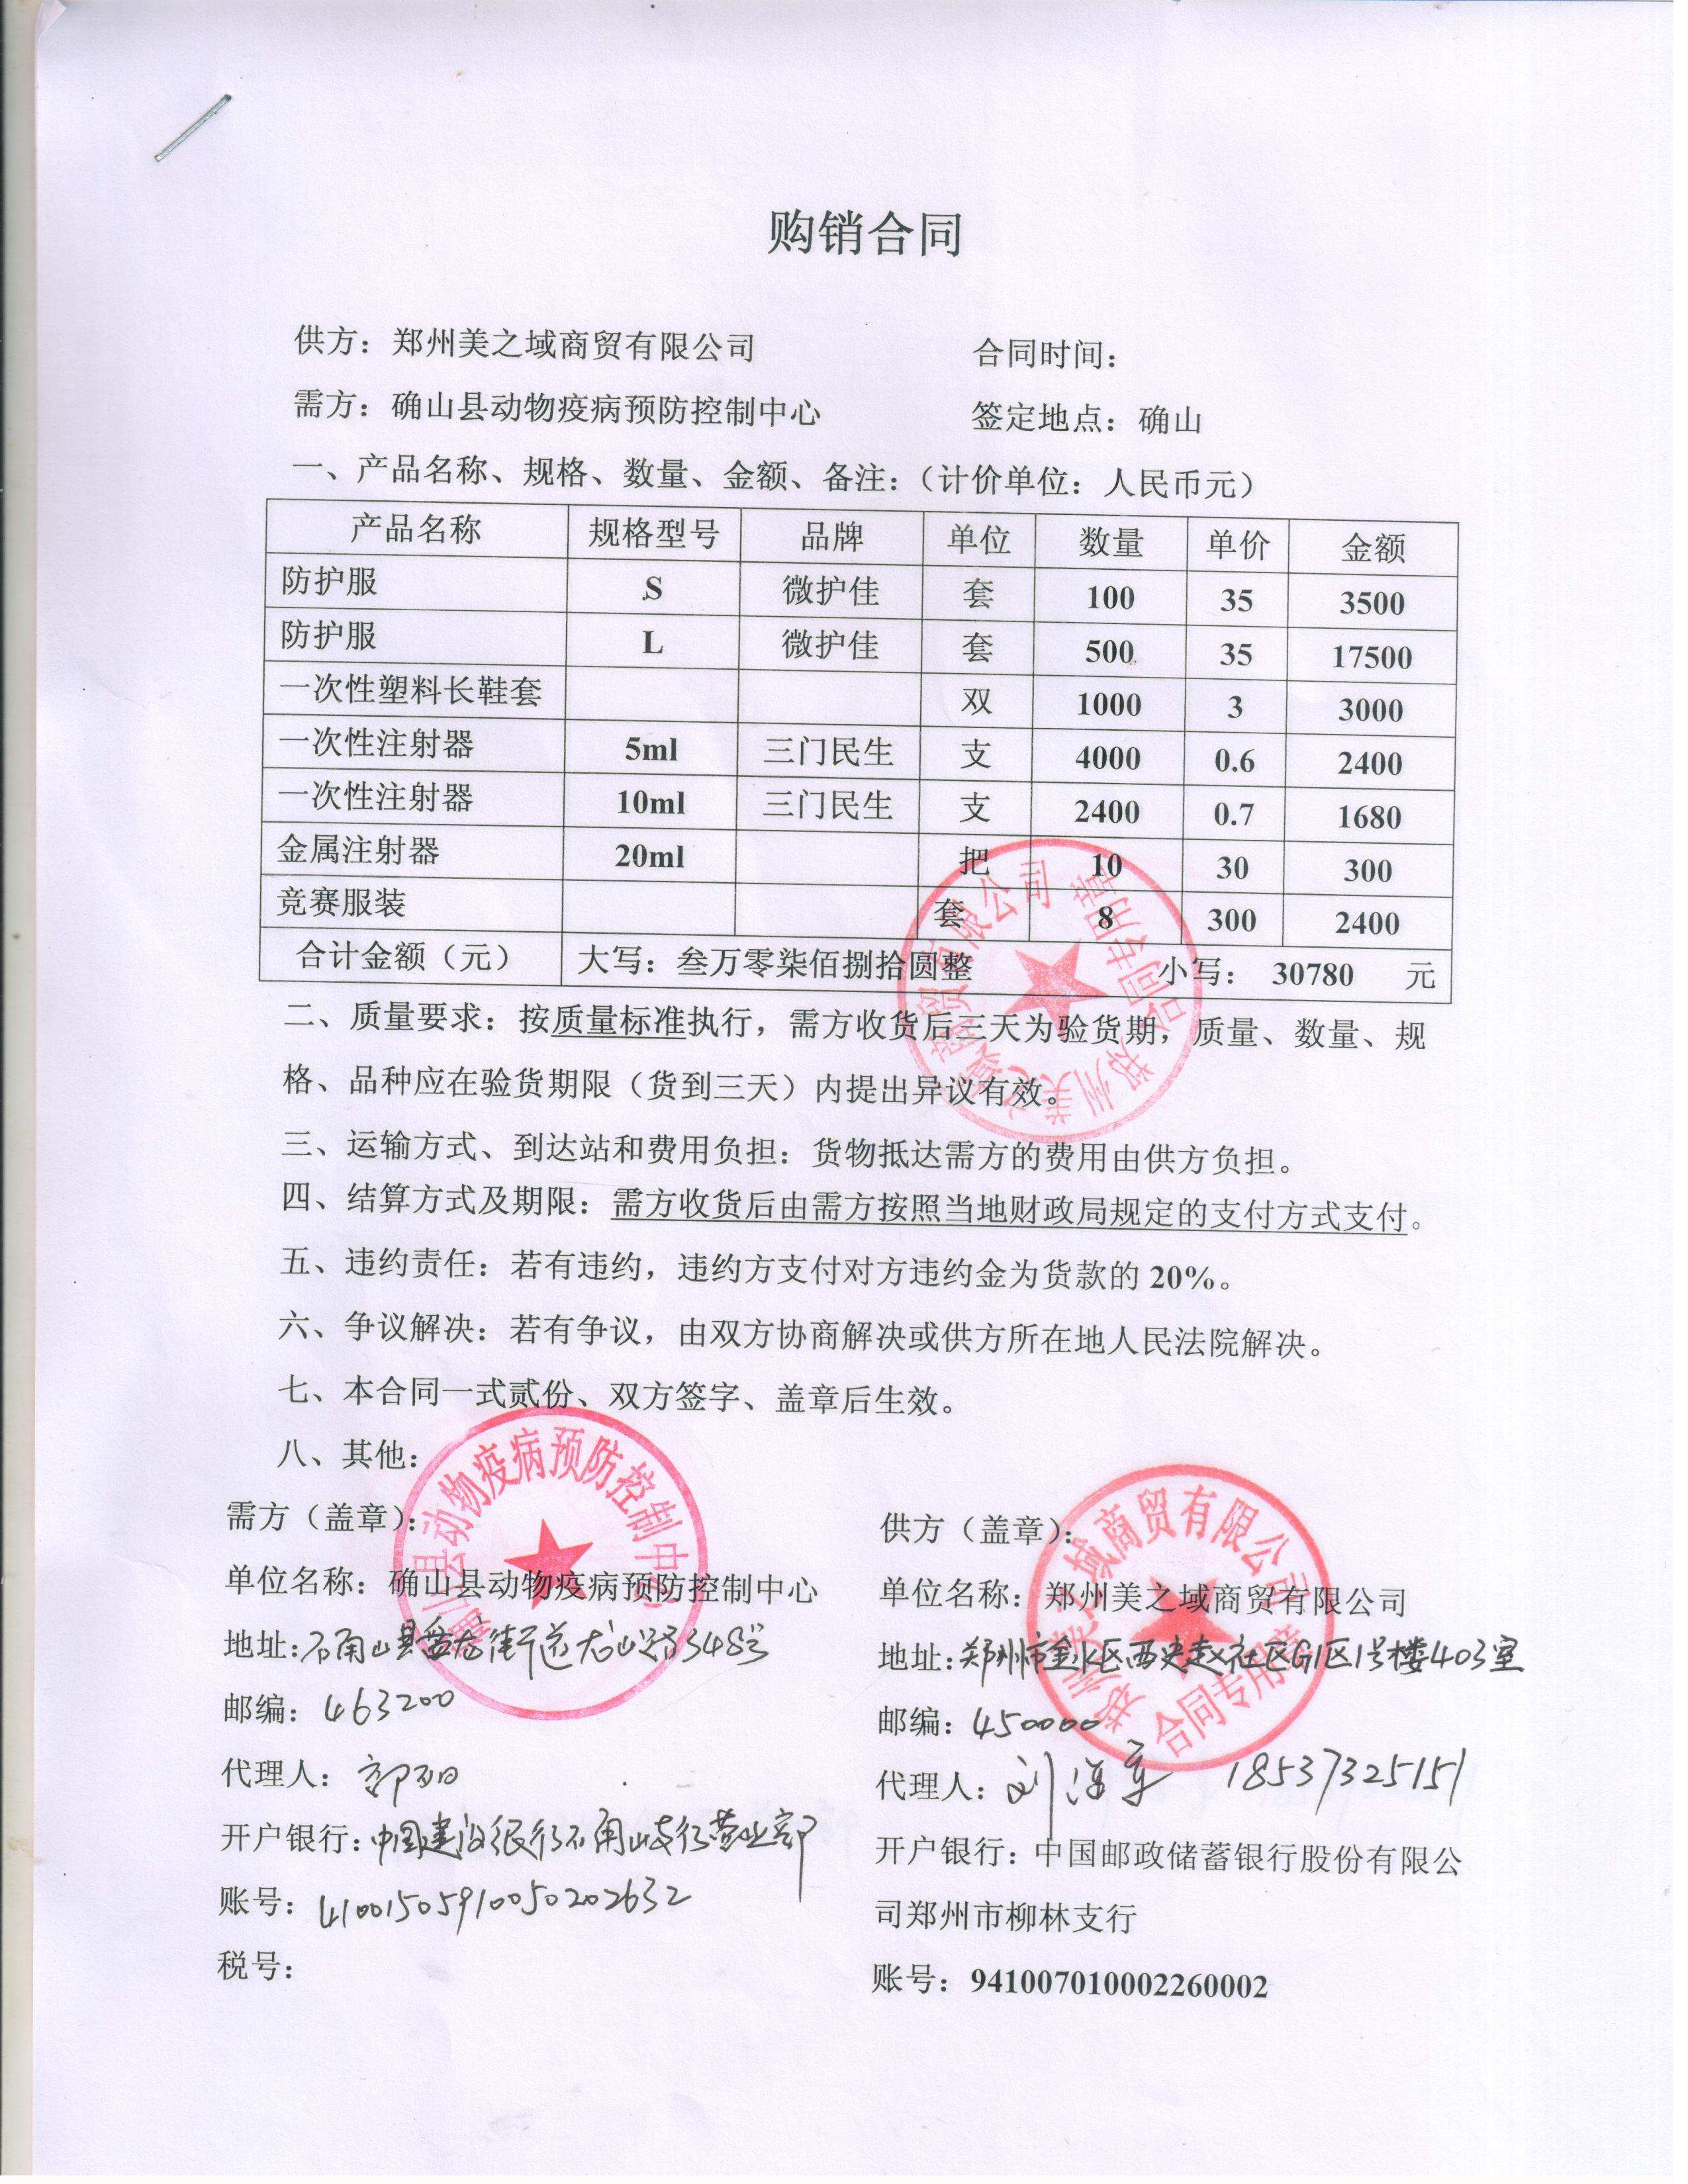 购销合同
供方：郑州美之域商贸有限公司 合同时间：
需方：确山县动物疫病预防控制中心 签定地点：确山
一、产品名称、规格、数量、金额、备注：（计价单位：人民币元）
产品名称 规格型号 品牌 单位 数量 单价 金额
防护服 S 微护佳 套 100 35 3500
防护服 L 微护佳 套 500 35 17500
一次性塑料长鞋套 双 1000 3 3000
一次性注射器 5ml 三门民生 支 4000 0.6 2400
一次性注射器 10ml 三门民生 支 2400 0.7 1680
金属注射器 20ml 把 10 30 300
竞赛服装 套 8 300 2400
合计金额（元） 大写：叁万零柒佰捌拾圆整 小写： 30780 元
郑州美之域商贸有限公司
合同专用章
二、质量要求：按质量标准执行，需方收货后三天为验货期，质量、数量、规
格、品种应在验货期限（货到三天）内提出异议有效。
三、运输方式、到达站和费用负担：货物抵达需方的费用由供方负担。
四、结算方式及期限：需方收货后由需方按照当地财政局规定的支付方式支付。
五、违约责任：若有违约，违约方支付对方违约金为货款的 20%。
六、争议解决：若有争议，由双方协商解决或供方所在地人民法院解决。
七、本合同一式贰份、双方签字、盖章后生效。
八、其他：
需方（盖章）：
单位名称：确山县动物疫病预防控制中心
地址：确山县盘龙街道龙山路348号
邮编：463200
代理人：
开户银行：中国建设银行确山支行营业部
账号：41001505910050202632
税号：
确山县动物疫病预防控制中心
供方（盖章）：
单位名称：郑州美之域商贸有限公司
地址：郑州市金水区西史赵社区G1区1号楼403室
邮编：450000
代理人：刘 18537325151
开户银行：中国邮政储蓄银行股份有限公
司郑州市柳林支行
账号：941007010002260002
郑州美之域商贸有限公司
合同专用章